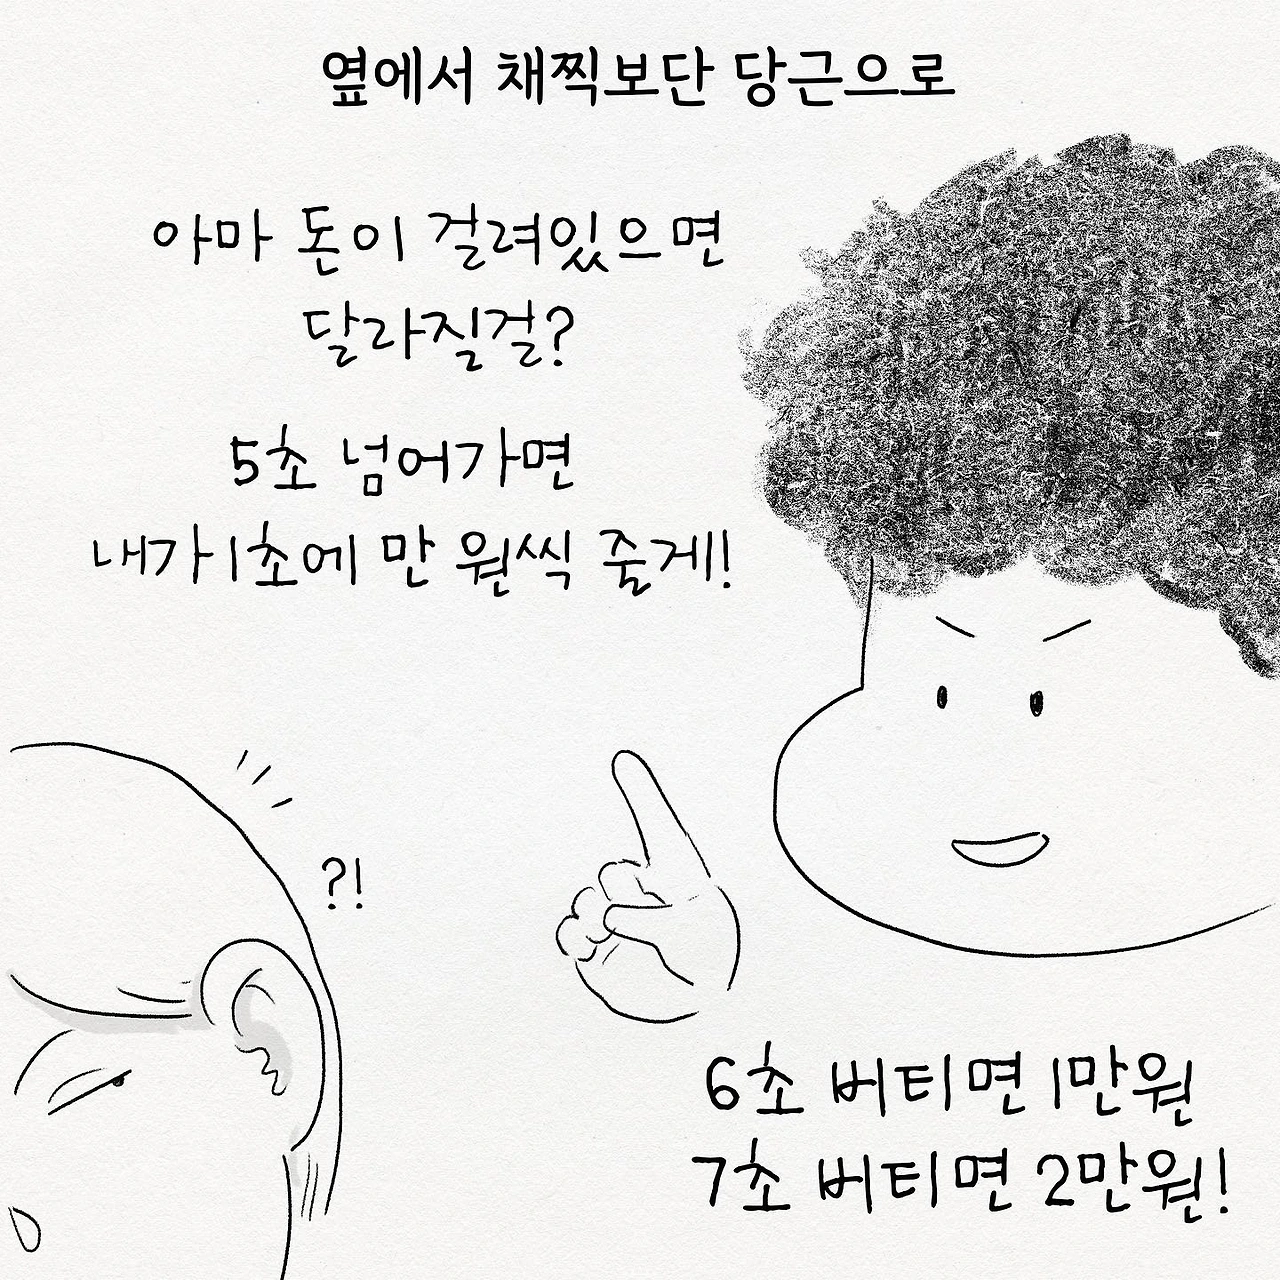 옆에서 채찍보단 당근으로
아마 돈이 걸려있으면
달라질걸?
5초 넘어가면
내가 1초에 만 원씩 줄게!
?!
6초 버티면 1만원
7초 버티면 2만원!